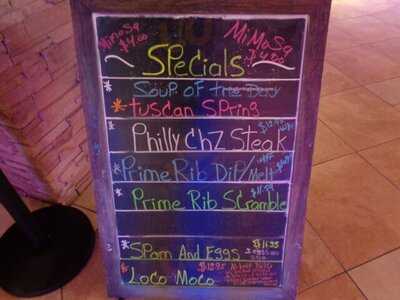 Mimosa $4.00
MiMoSa $4.00
Specials
Soup of the Day
tuscan Spring
Philly Chz Steak
Prime Rib Dip/Melt
Prime Rib Scramble
Spam And Eggs $11.25
Loco Moco $12.95